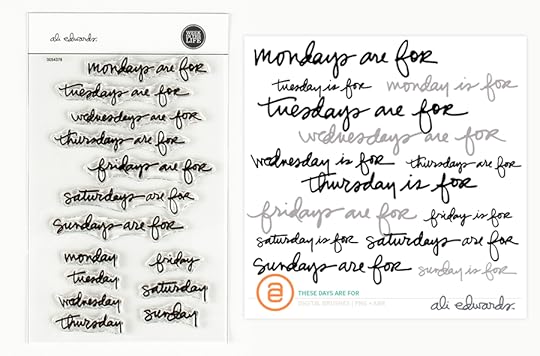 ali edwards.
WEEK
IN THE
LIFE
mondays are for
tuesdays are for
wednesdays are for
thursdays are for
fridays are for
saturdays are for
sundays are for
monday
friday
tuesday
saturday
wednesday
sunday
thursday
mondays are for
tuesday is for monday is for
tuesdays are for
wednesdays are for
wednesday is for thursdays are for
thursday is for
fridays are for friday is for
saturday is for saturdays are for
sundays are for sunday is for
a
THESE DAYS ARE FOR
DIGITAL BRUSHES | PNG + ABR
ali edwards.